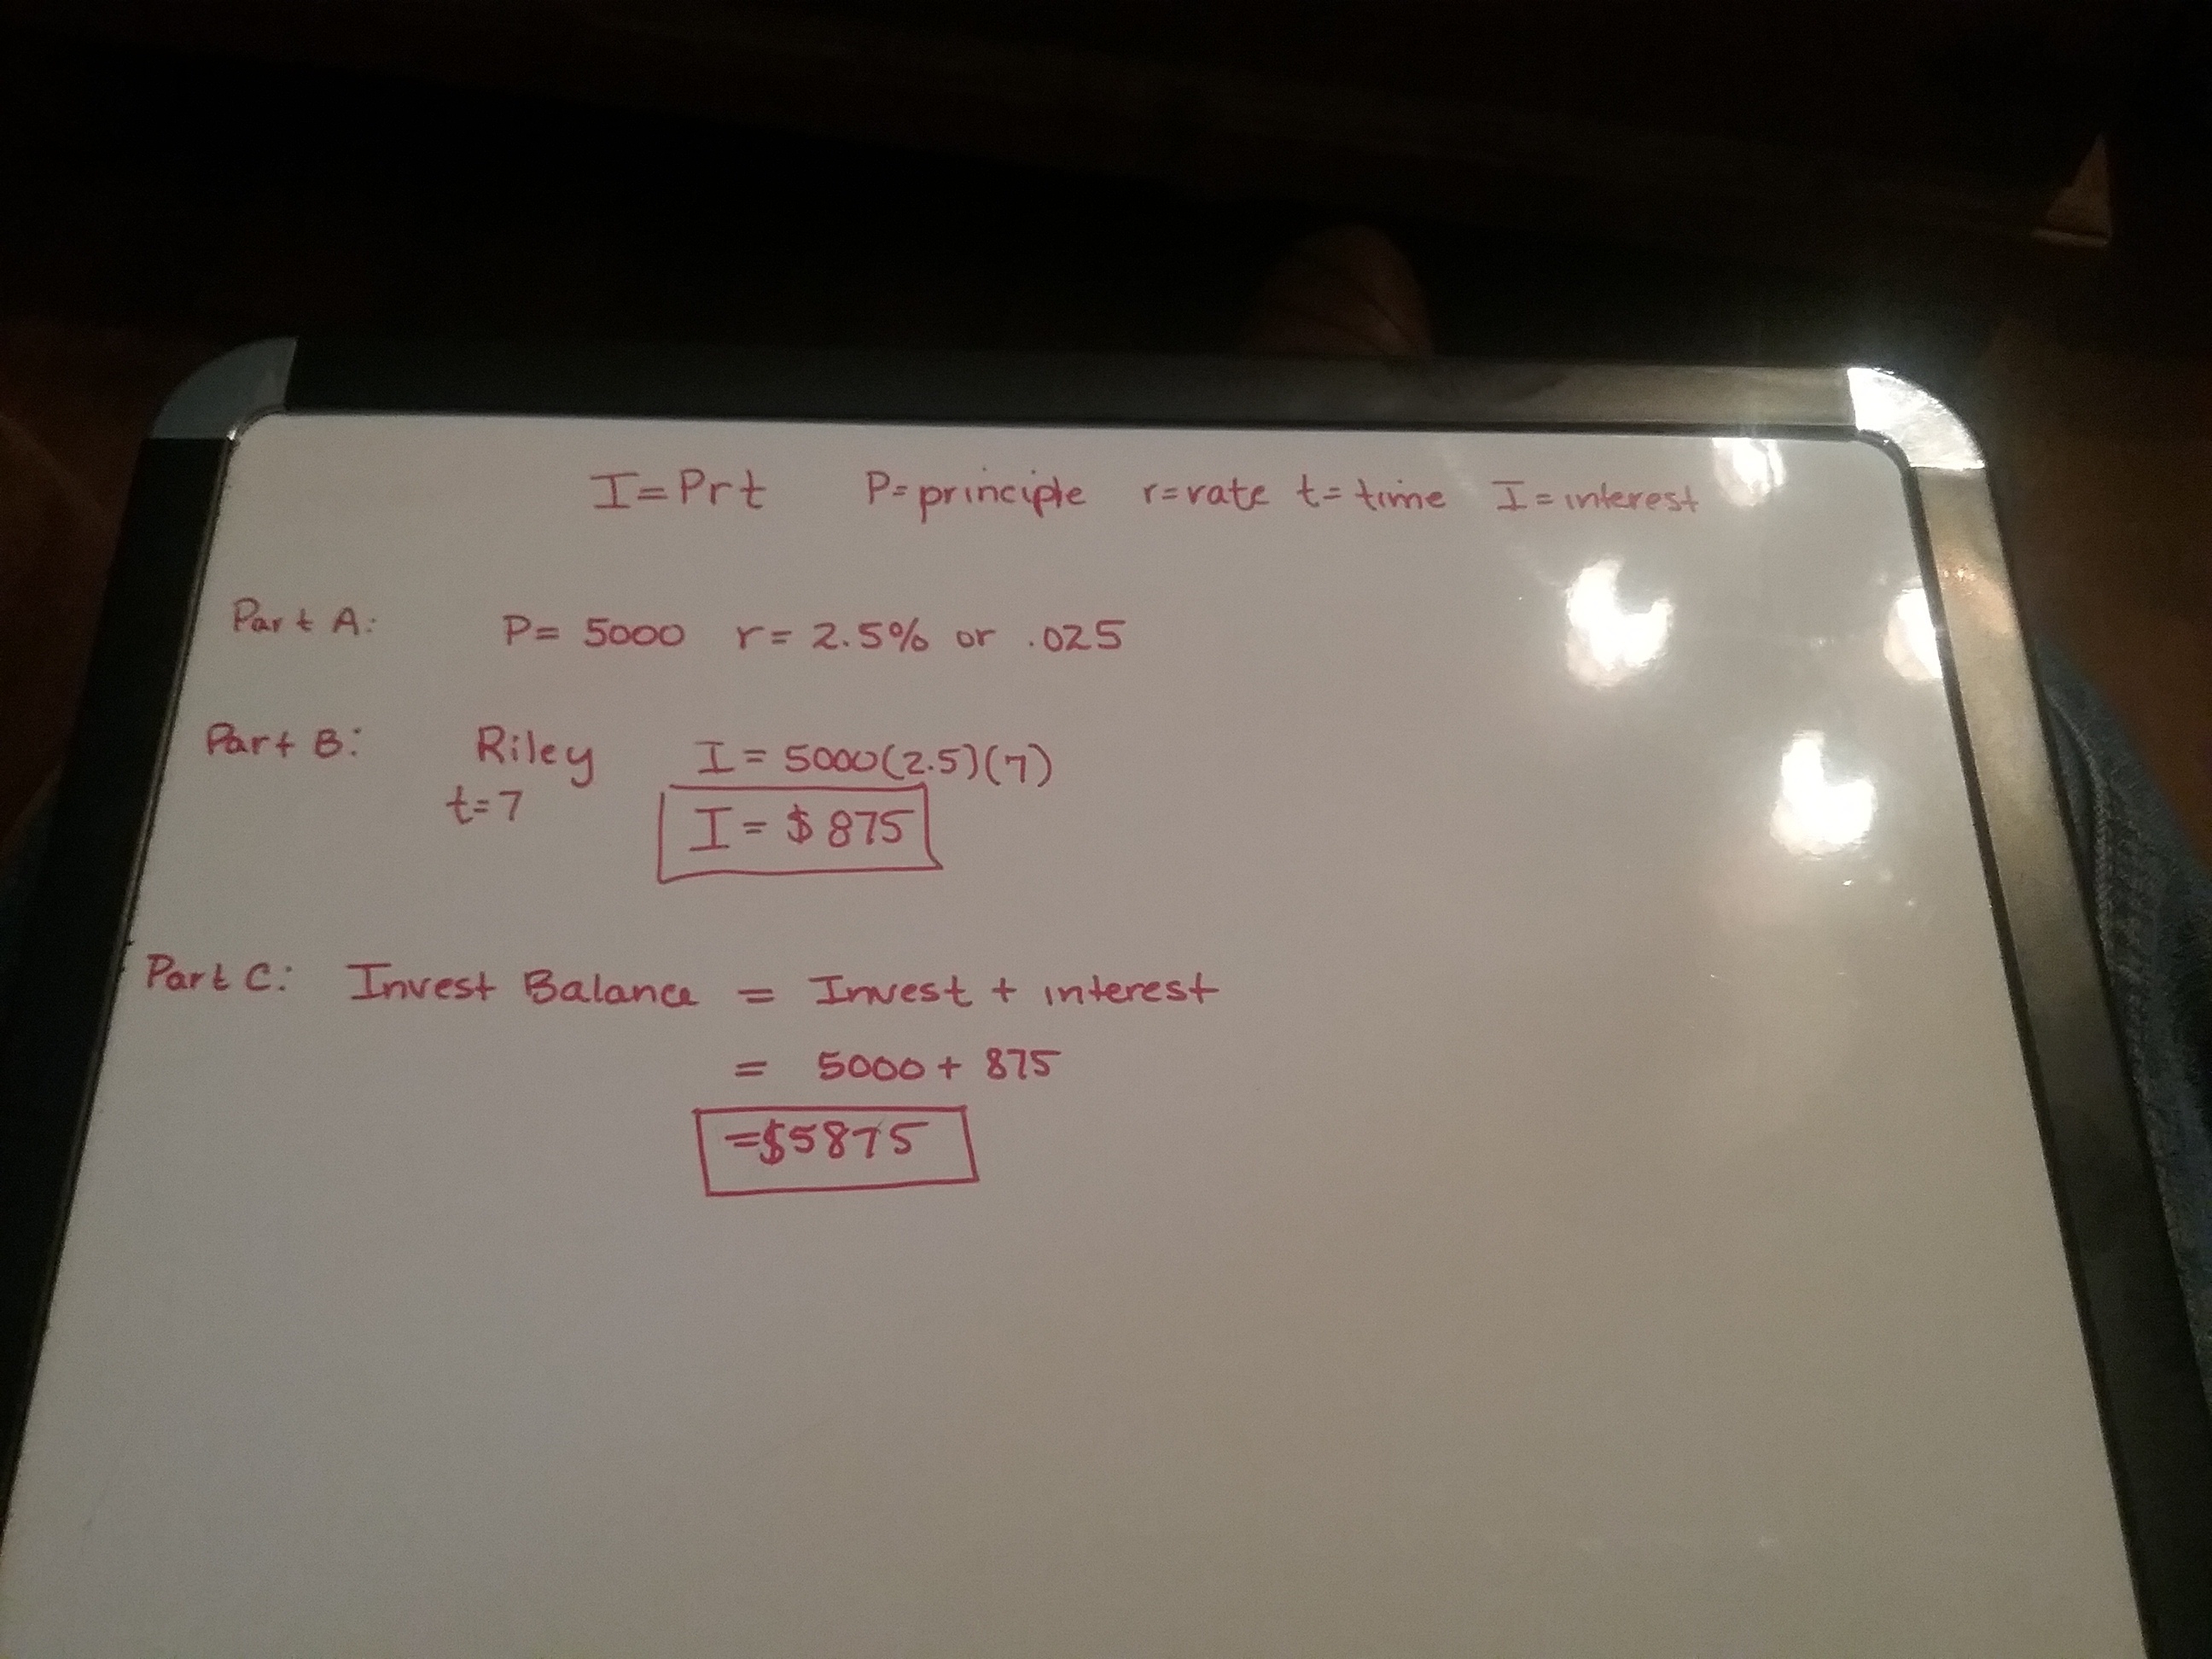 I=Prt P=principle r=rate t=time I=interest
Part A: P= 5000 r= 2.5% or .025
Part B: Riley I = 5000(2.5)(7)
t=7 I = $ 875
Part C: Invest Balance = Invest + interest
= 5000 + 875
=$5875